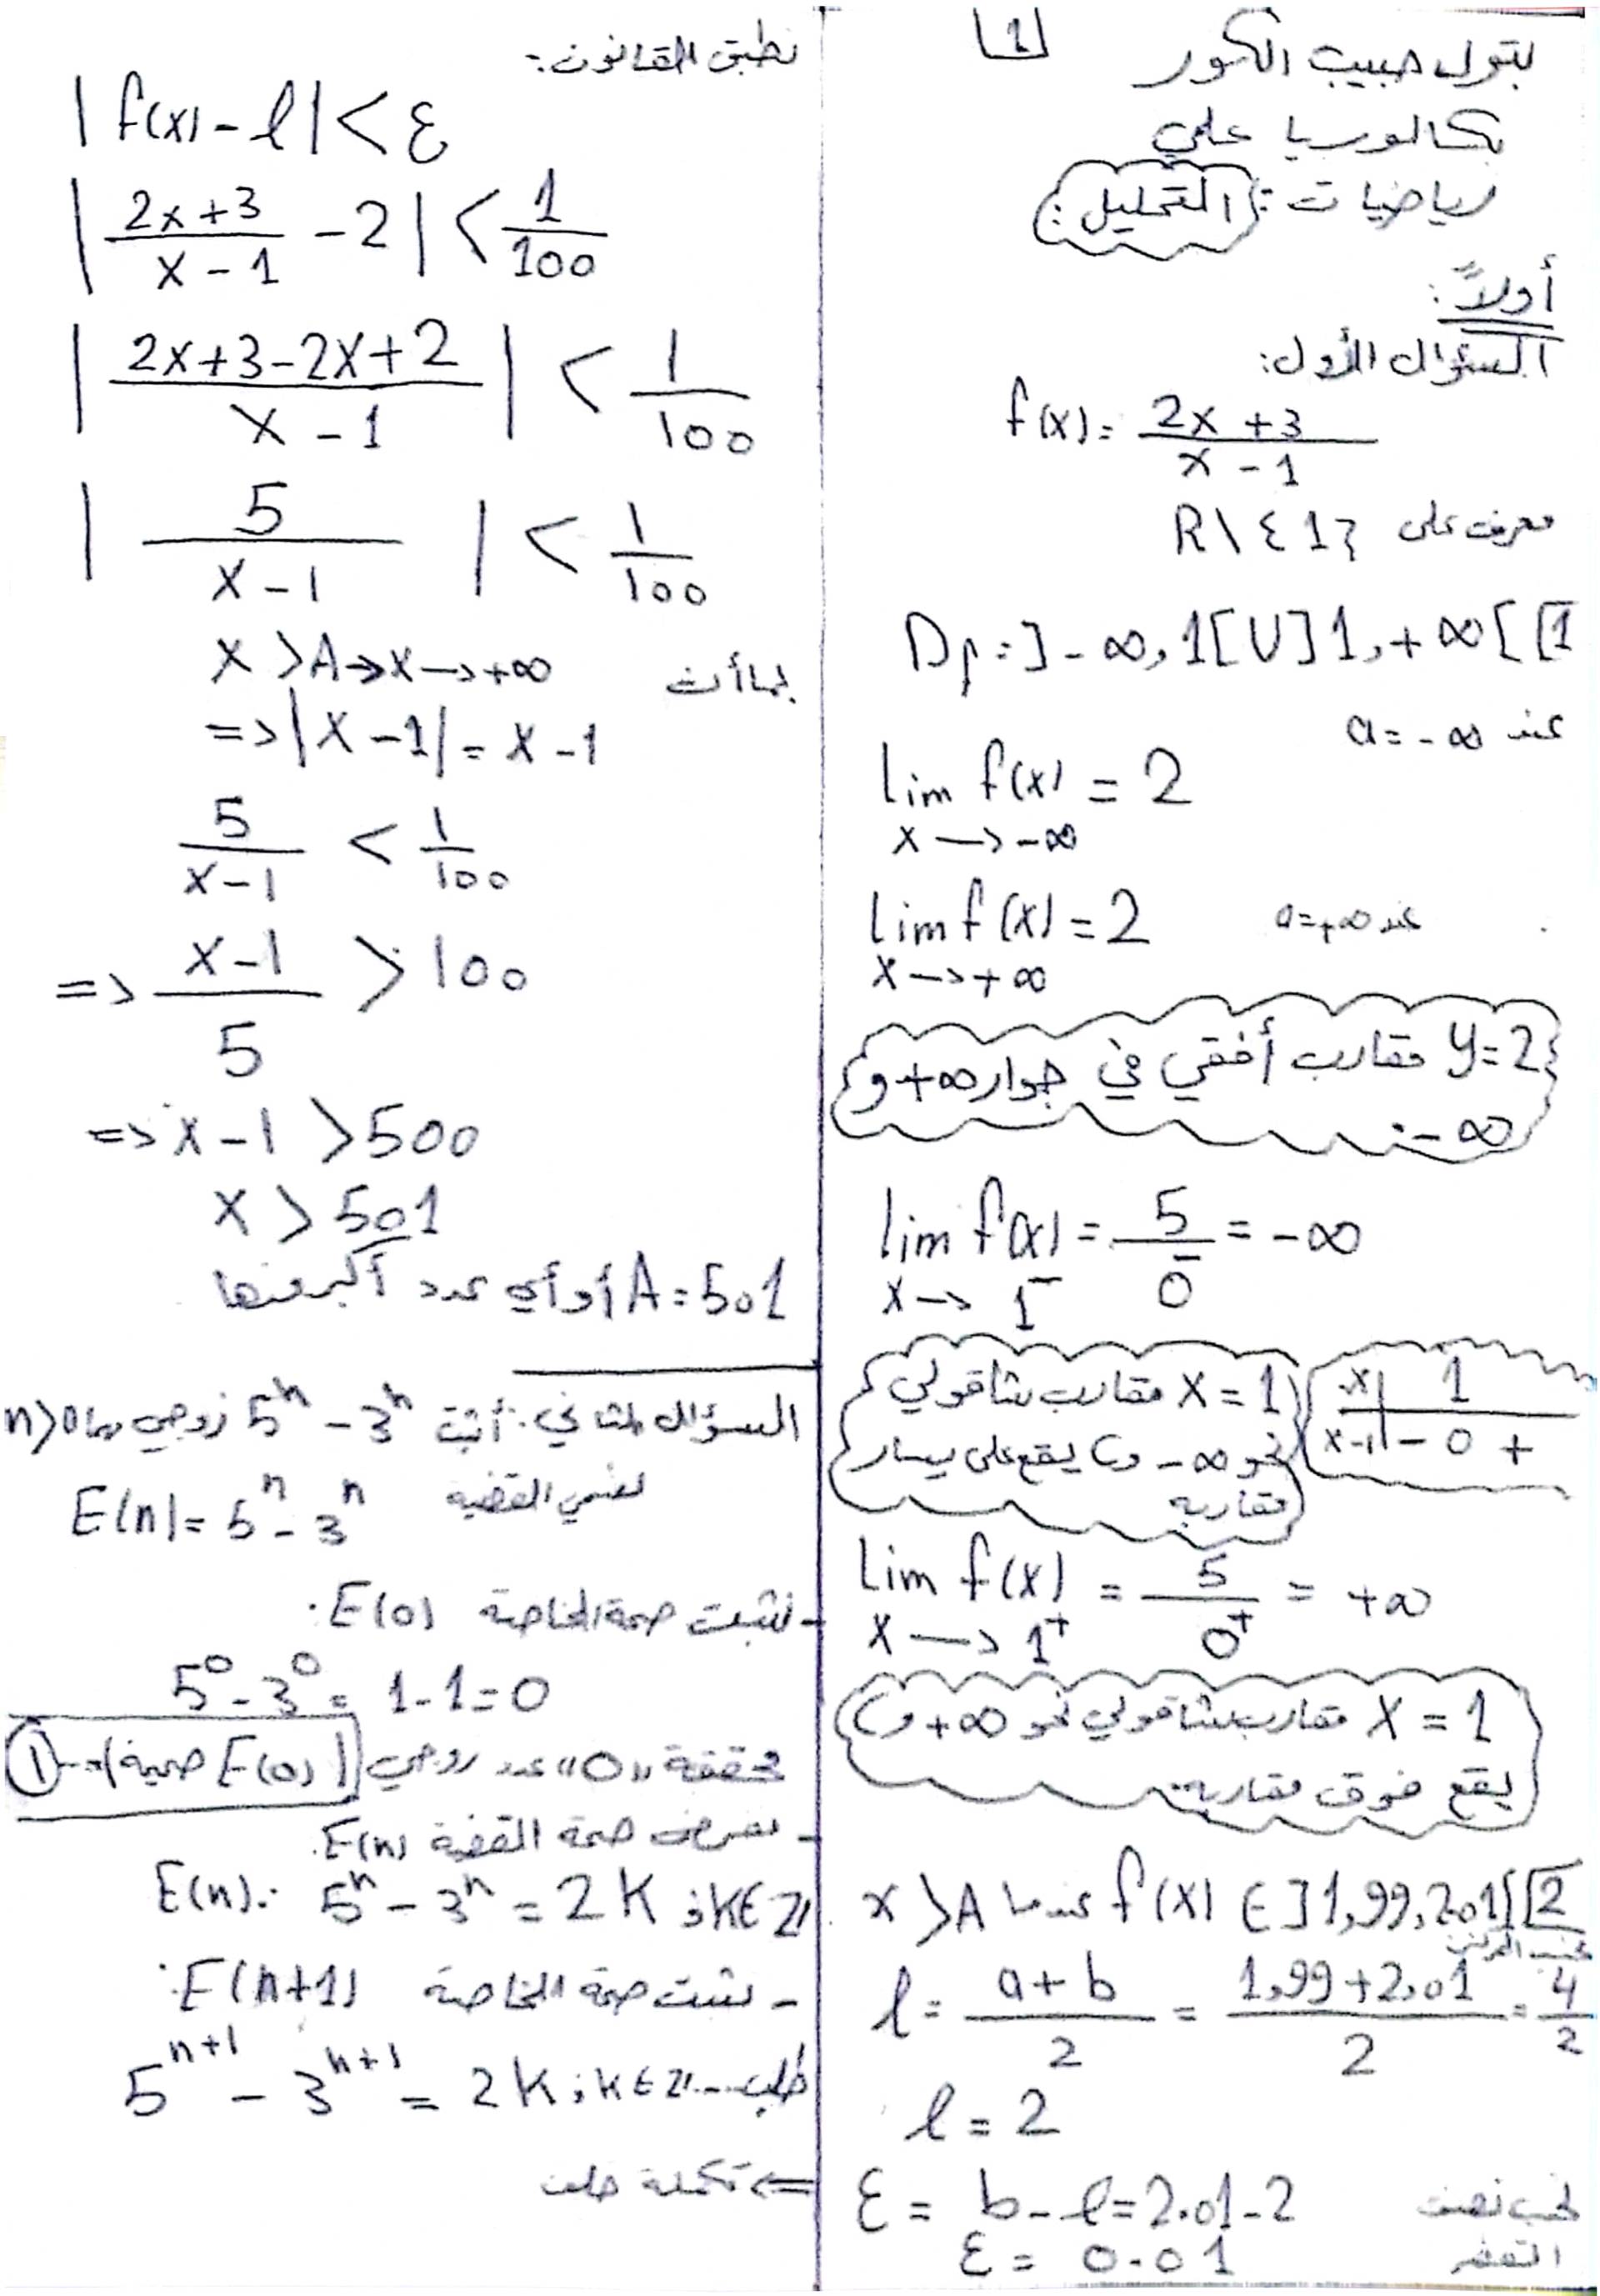 [1]
بتول حبيب الكور
بكالوريا علمي
رياضيات: التحليل:
أولاً:
السؤال الأول:
f(x) = (2x+3)/(x-1)
معرف على R\{1}
[1] Df = ]-∞, 1[ U ]1, +∞[
عند a = -∞
lim f(x) = 2
x → -∞
عند a = +∞
lim f(x) = 2
x → +∞
y = 2 مقارب أفقي في جوار +∞ و
-∞
lim f(x) = 5/0⁻ = -∞
x → 1⁻
x | 1
x-1 | - 0 +
x = 1 مقارب شاقولي
نحو -∞ و C يقع على يسار
مقاربه
lim f(x) = 5/0⁺ = +∞
x → 1⁺
x = 1 مقارب شاقولي نحو +∞ و C
يقع فوق مقاربه
[2] f(x) ∈ ]1,99, 2.01[ عندما x > A
نحسب المركز
l = (a+b)/2 = (1,99+2.01)/2 = 4/2
l = 2
نحسب نصف
القطر
ε = b - l = 2.01 - 2
ε = 0.01
نطبق القانون:
|f(x) - l| < ε
|(2x+3)/(x-1) - 2| < 1/100
|(2x+3-2x+2)/(x-1)| < 1/100
|5/(x-1)| < 1/100
بما أن x > A → x → +∞
=> |x-1| = x-1
5/(x-1) < 1/100
=> (x-1)/5 > 100
=> x-1 > 500
x > 501
A = 501 أو أي عدد أكبر منها
السؤال الثاني: أثبت 5ⁿ - 3ⁿ زوجي n>0
لنسمي القضية E(n) = 5ⁿ - 3ⁿ
- نثبت صحة الخاصة E(0).
5⁰ - 3⁰ = 1 - 1 = 0
محققة "0" عدد زوجي E(0) صحيحة ... ①
- نفرض صحة القضية E(n).
E(n): 5ⁿ - 3ⁿ = 2K ; K∈Z
- نثبت صحة الخاصة E(n+1).
5ⁿ⁺¹ - 3ⁿ⁺¹ = 2K ; K∈Z ... طلب
<= تكملة خلف